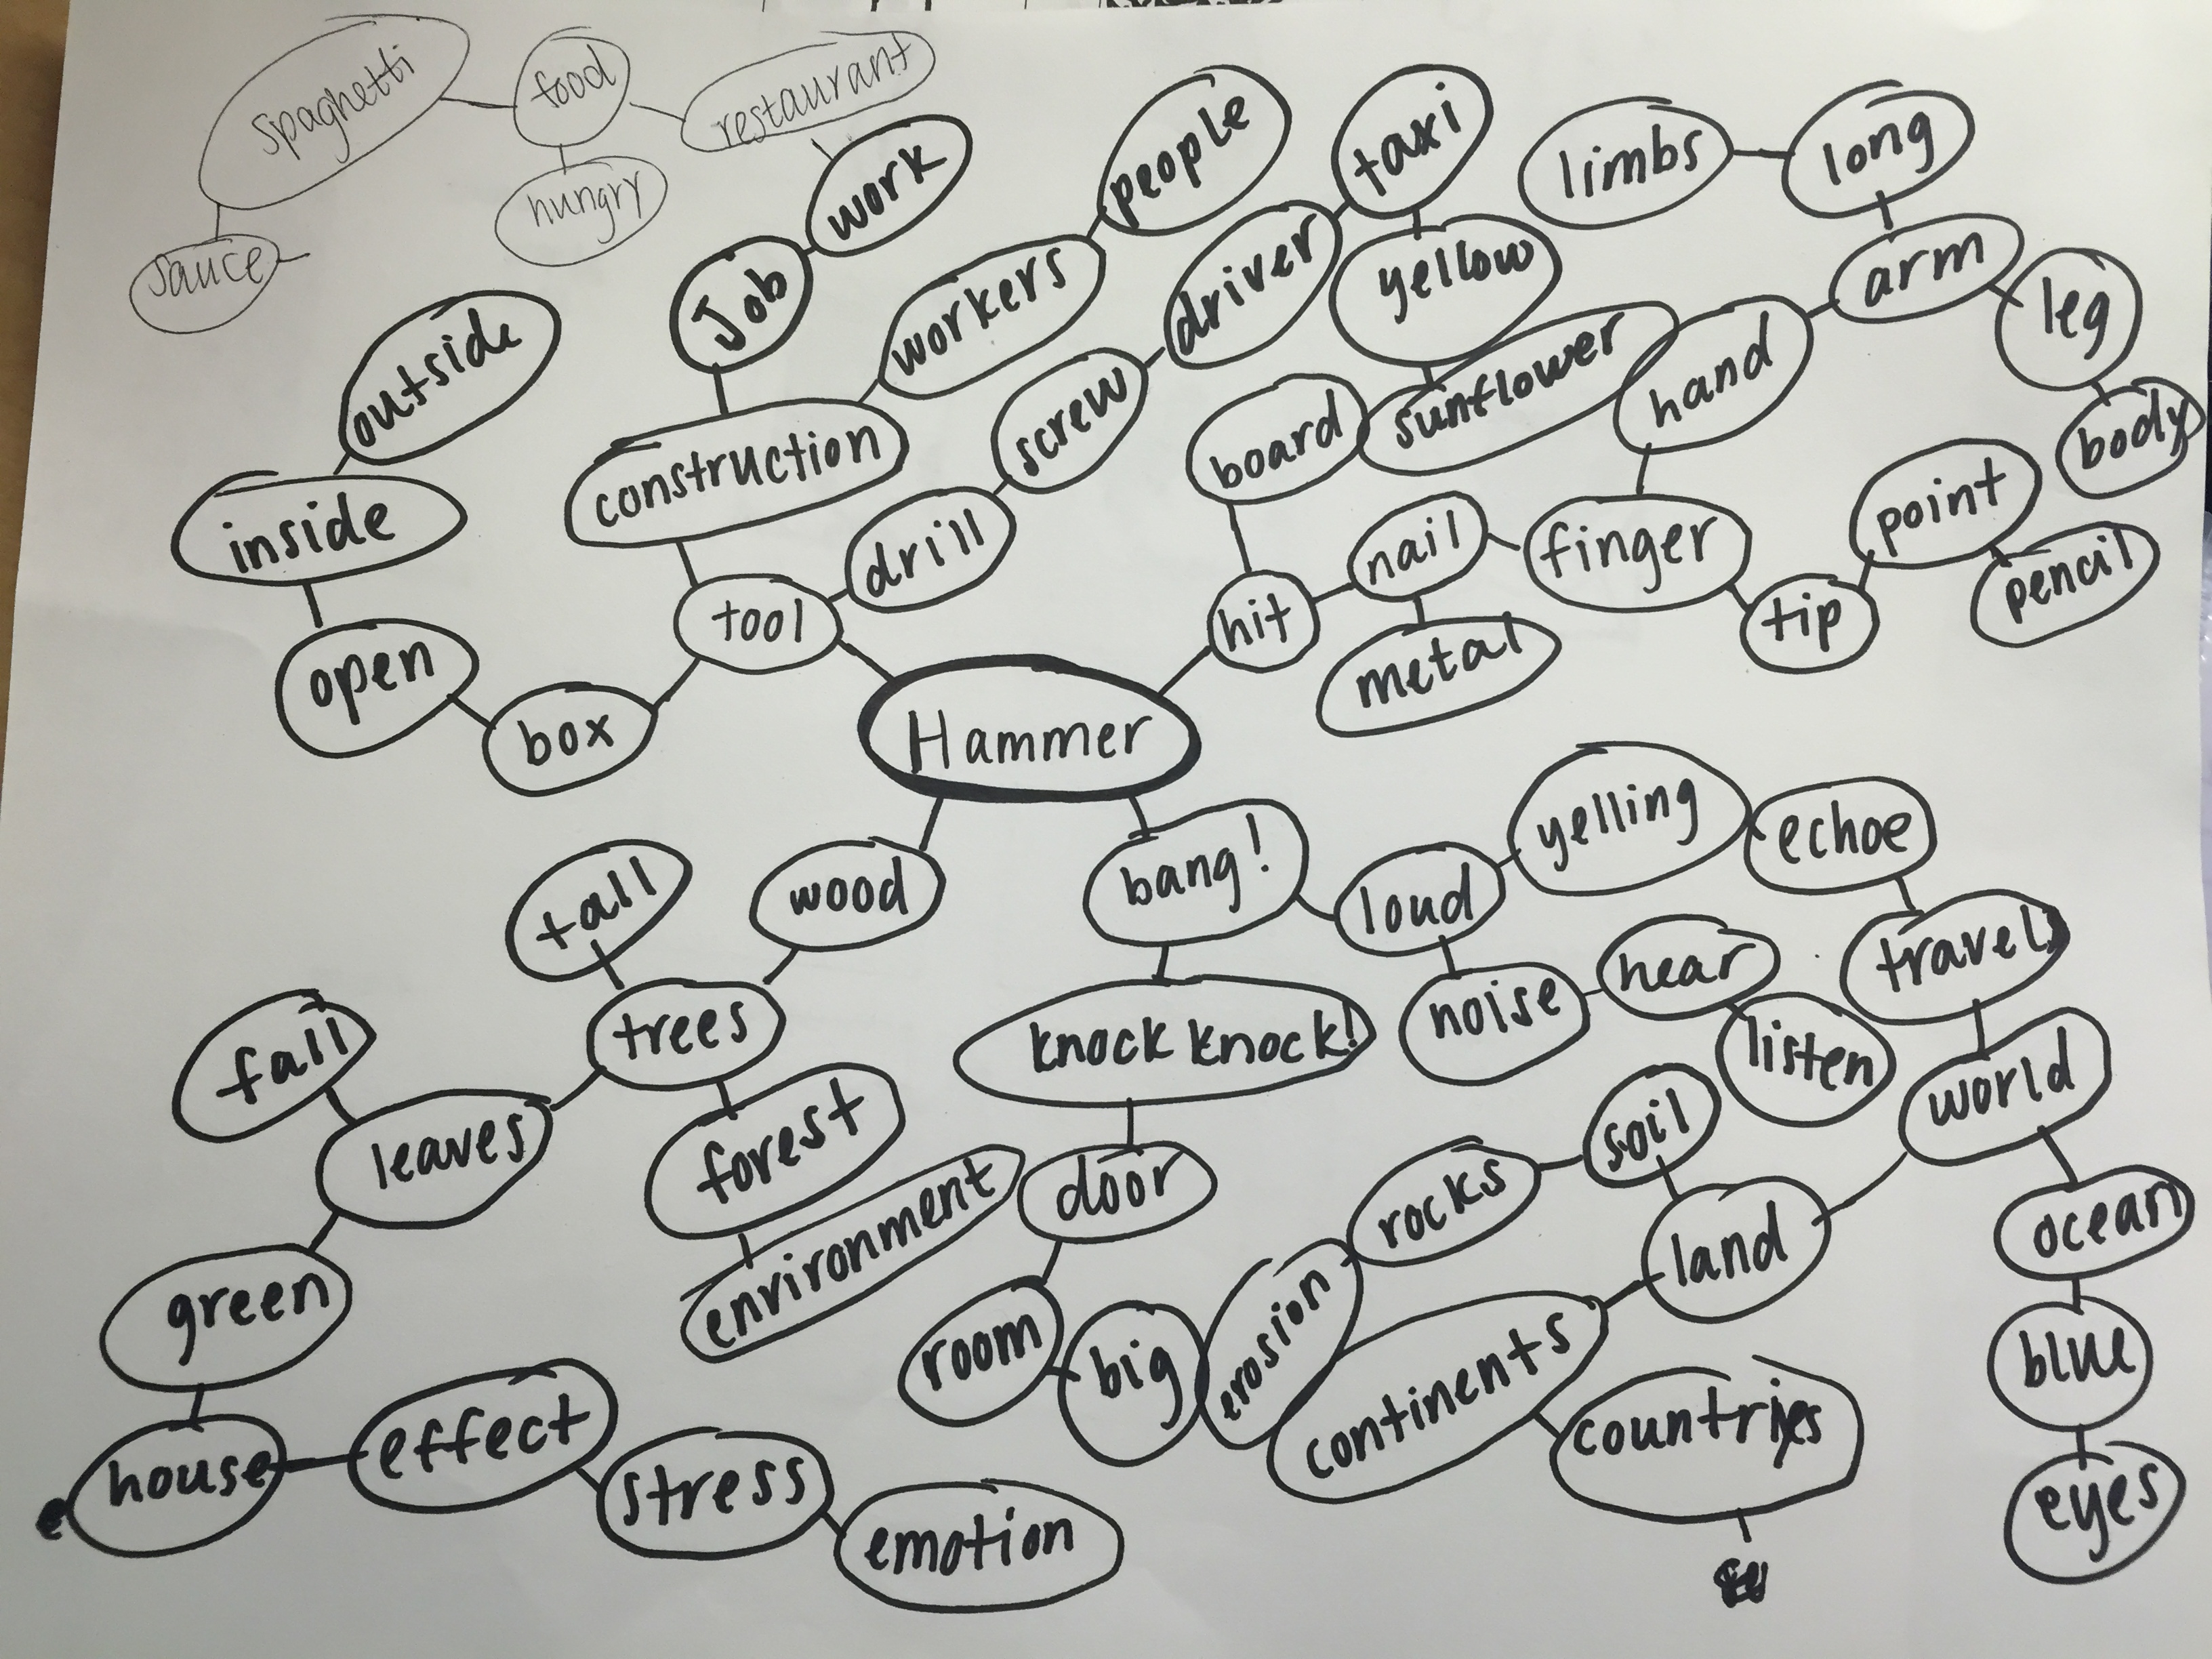 spaghetti
food
restaurant
hungry
sauce
work
people
taxi
limbs
long
Job
workers
driver
yellow
arm
leg
outside
construction
screw
board
sunflower
hand
body
inside
drill
nail
finger
point
pencil
tool
hit
tip
open
box
metal
Hammer
yelling
echoe
tall
wood
bang!
loud
travels
hear
noise
listen
trees
knock knock!
fall
world
soil
leaves
forest
door
rocks
land
ocean
environment
green
room
big
erosion
continents
blue
countries
house
effect
stress
emotion
eyes